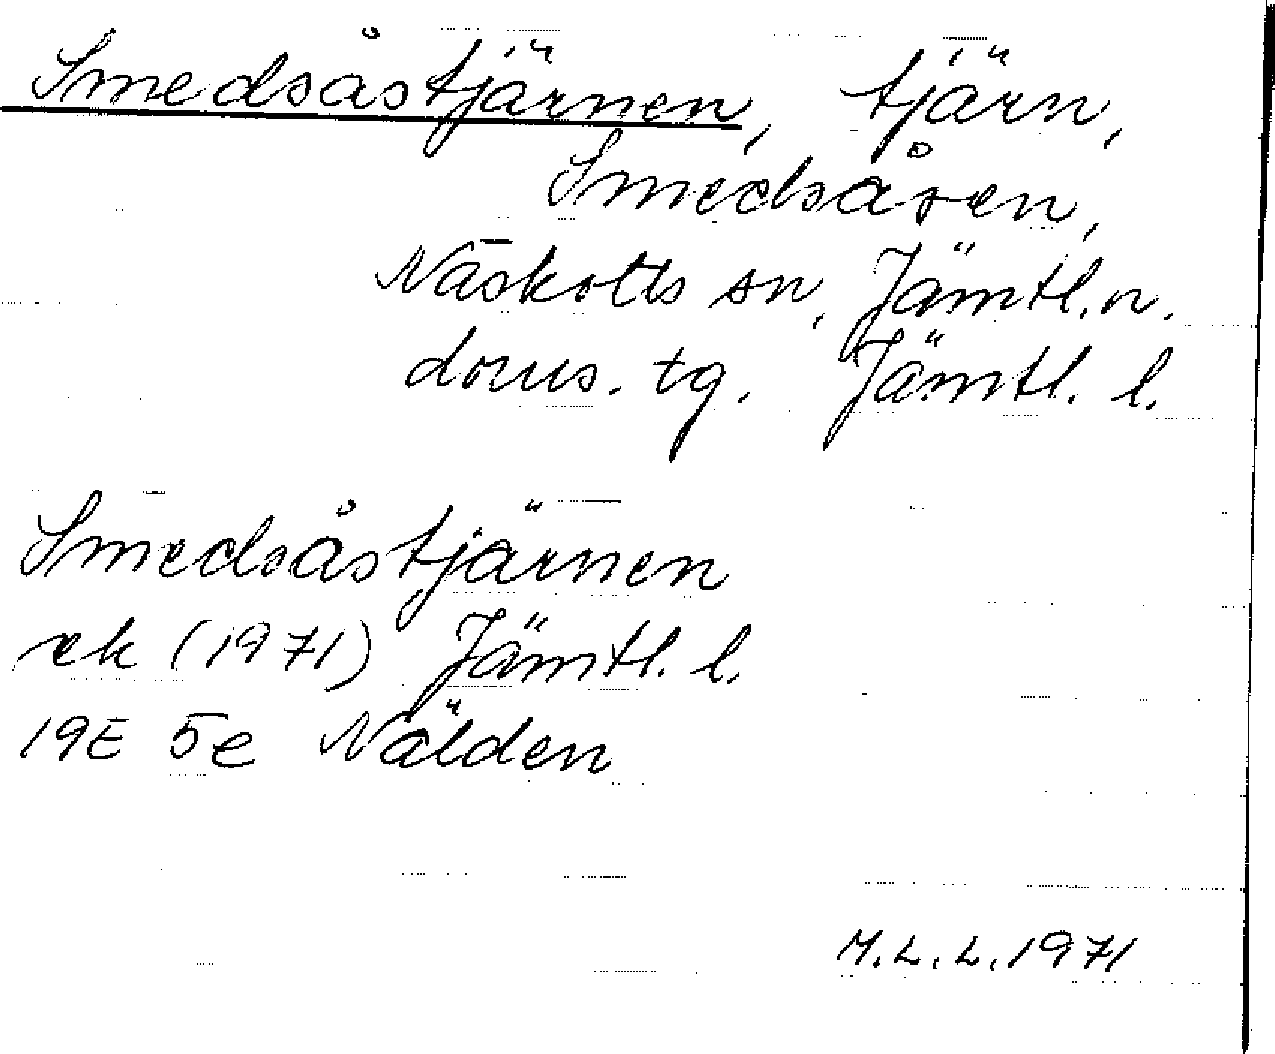 Smedsåstjärnen, tjärn,
Smedsåsen,
Näskotts sn, Jämtl. n.
doms. tg. Jämtl. l.
Smedsåstjärnen
ek (1971) Jämtl. l.
19E 5e Nälden
M.L.L. 1971